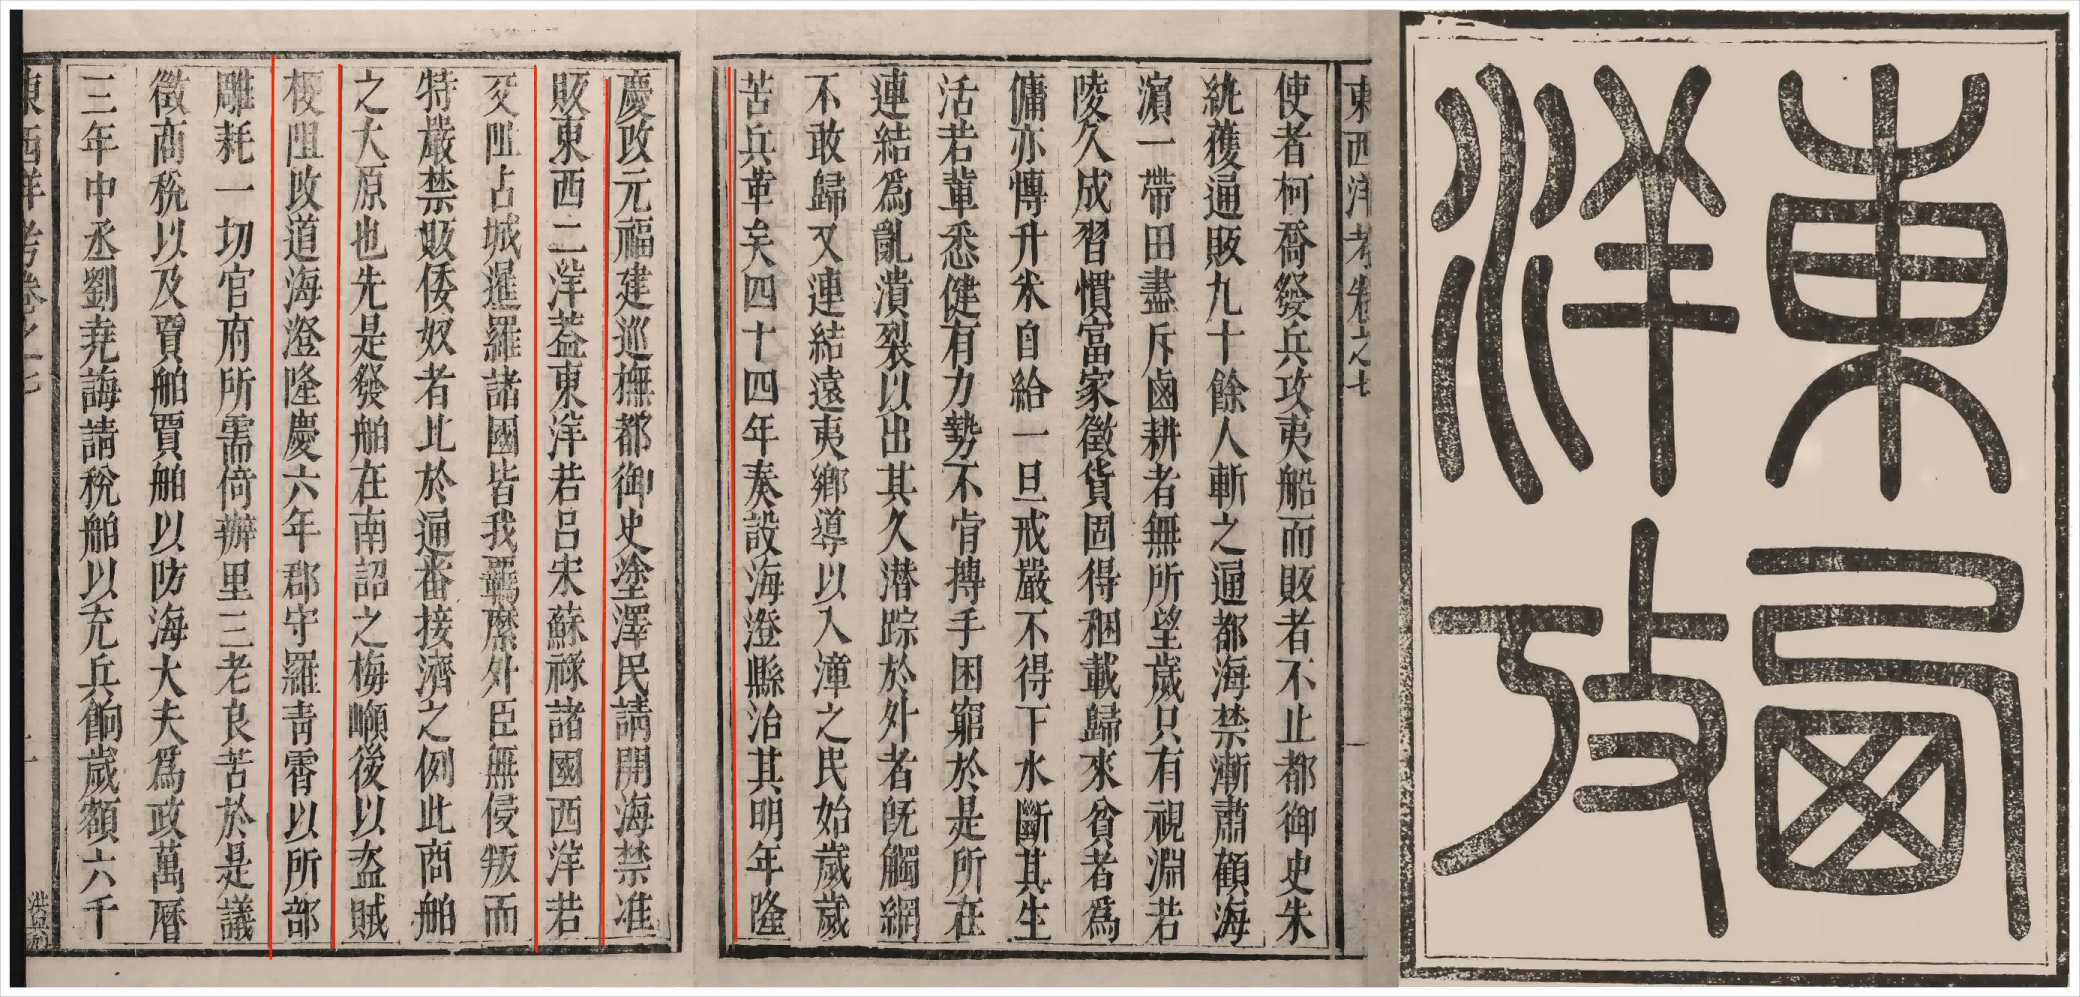 東西
洋攷
東西洋考卷之七 一
使者柯喬發兵攻夷船而販者不止都御史朱
紈獲通販九十餘人斬之通都海禁漸肅顧海
濵一帶田盡斥鹵耕者無所望歲只有視淵若
陵久成習慣富家徵貨固得稛載歸來貧者爲
傭亦慱升米自給一旦戒嚴不得下水斷其生
活若輩悉健有力勢不肯摶手困窮於是所在
連結爲亂潰裂以出其久潜踪於外者旣觸網
不敢歸又連結遠夷鄉導以入漳之民始歲歲
苦兵革矣四十四年奏設海澄縣治其明年隆
慶改元福建巡撫都御史塗澤民請開海禁准
販東西二洋葢東洋若呂宋蘇祿諸國西洋若
交阯占城暹羅諸國皆我羈縻外臣無侵叛而
特嚴禁販倭奴者比於通番接濟之例此商舶
之大原也先是發舶在南詔之梅嶺後以盗賊
梗阻改道海澄隆慶六年郡守羅青霄以所部
雕耗一切官府所需倚辦里三老良苦於是議
徵商稅以及賈舶賈舶以防海大夫爲政萬曆
三年中丞劉堯誨請稅舶以充兵餉歲額六千
東西洋考卷之七 二